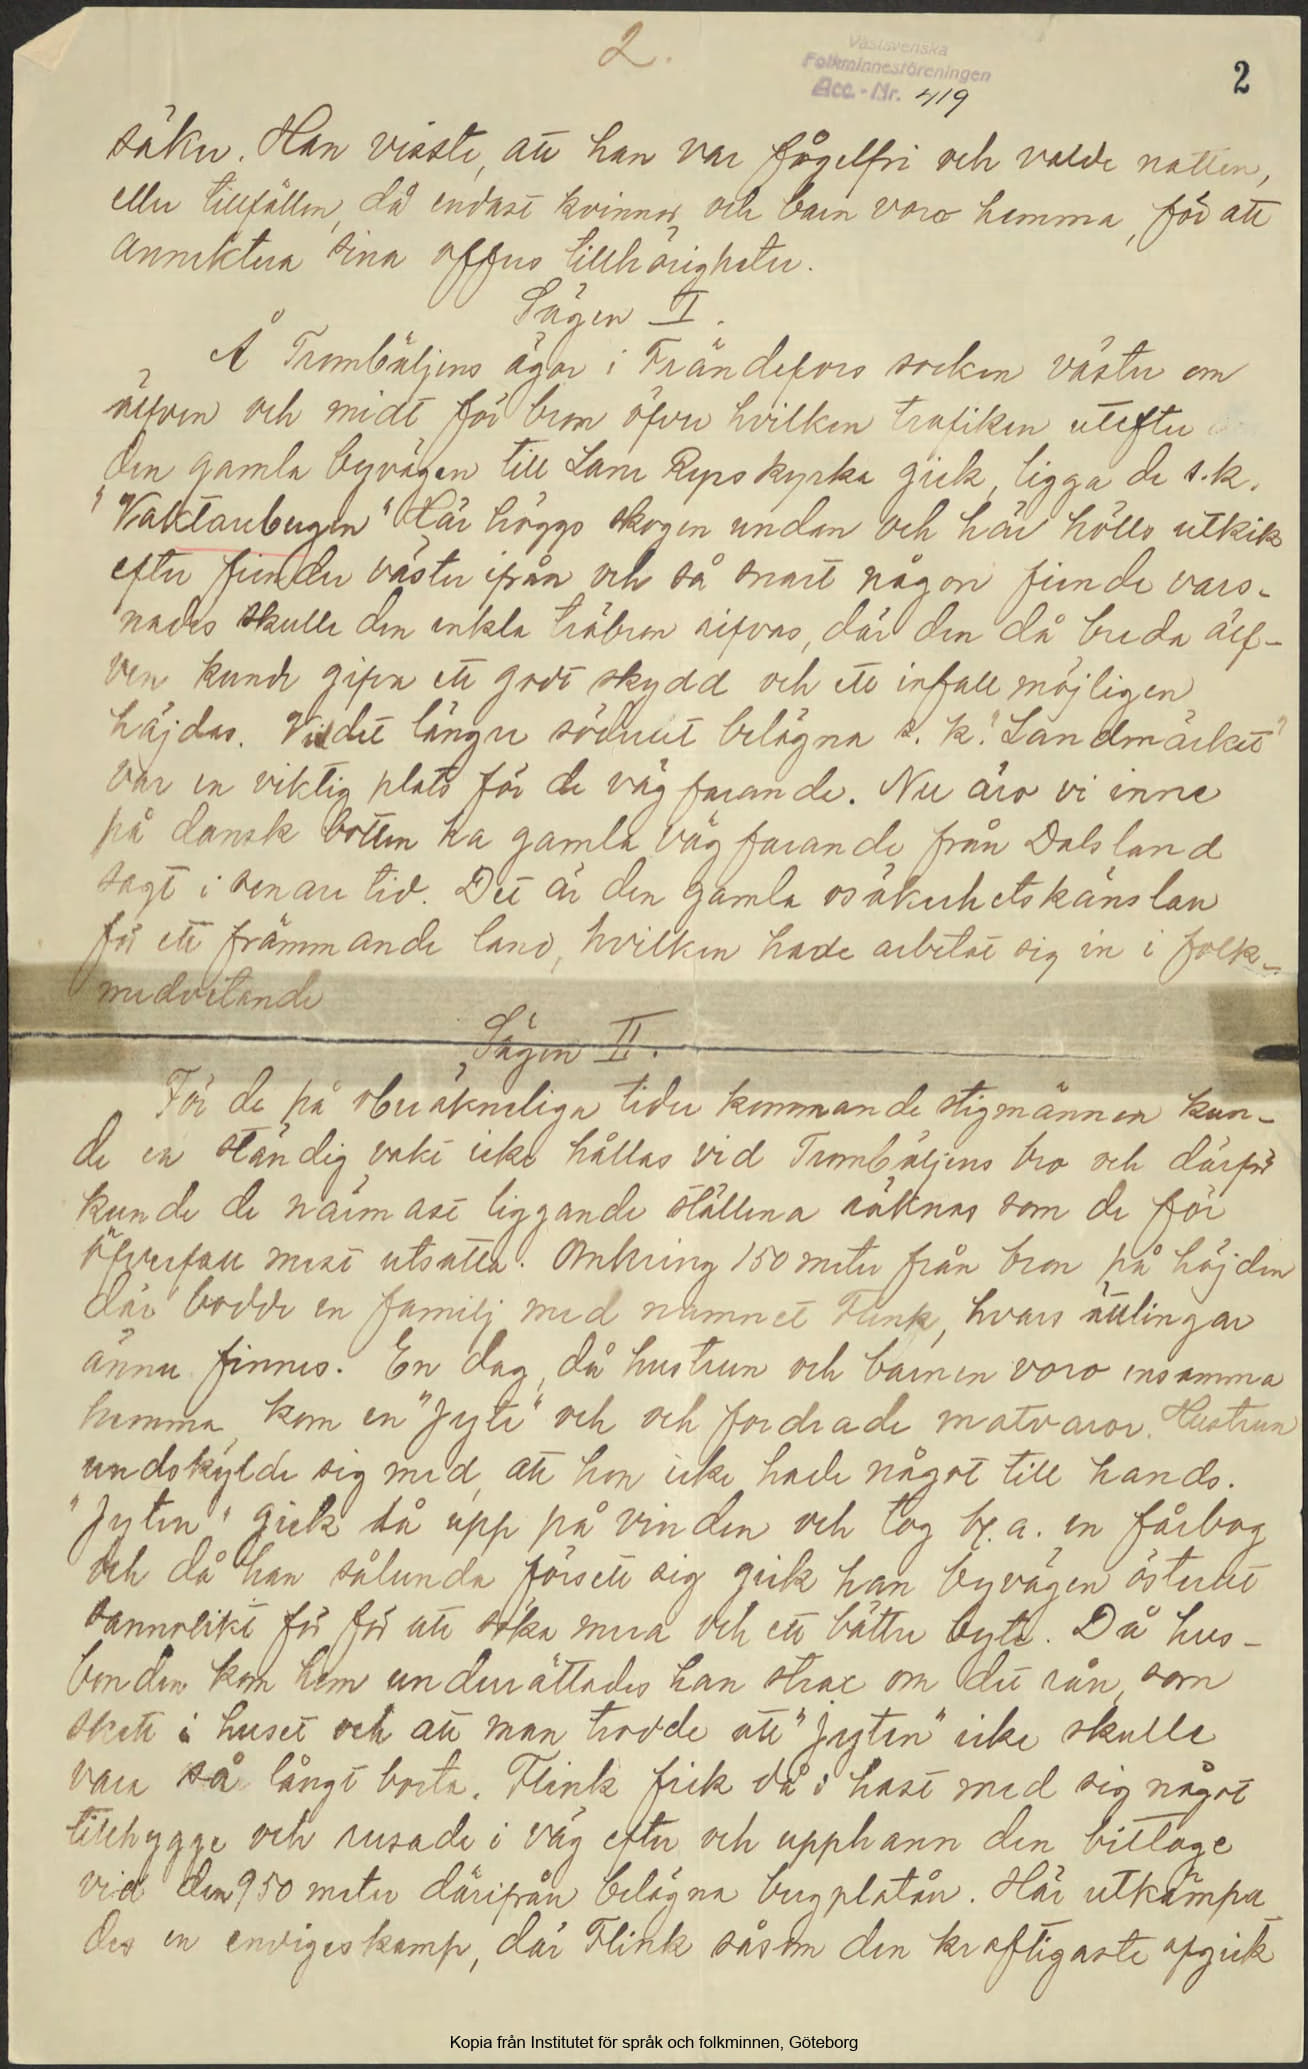 2.
Västsvenska
Folkminnesföreningen
Acc.-Nr. 419
2
säker. Han visste, att han var fågelfri och valde natten,
eller tillfällen, då endast kvinnor och barn voro hemma, för att
annektera sina offers tillhörigheter.
Sägen I.
Å Trombäljens ägor i Frändefors socken väster om
älfven och midt för bron öfver hvilken trafiken utefter
den gamla byvägen till Lane Ryrs kyrka gick, ligga de s.k.
"Vaktarebergen" Här höggs skogen undan och här hölls utkik
efter fiender väster ifrån och så snart någon fiende vars-
nades skulle den enkla träbron rifvas, där den då breda älf-
ven kunde gifva ett godt skydd och ett infall möjligen
häjdas. Vid det längre söderut belägna s. k. "Landmärket"
var en viktig plats för de vägfarande. Nu äro vi inne
på dansk botten ha gamla vägfarande från Dalsland
sagt i senare tid. Det är den gamla osäkerhetskänslan
för ett främmande land, hvilken hade arbetat sig in i folk-
medvetande
Sägen II.
För de på oberäkneliga tider kommande stigmännen kun-
de en ständig vakt icke hållas vid Trombäljens bro och därför
kunde de närmast liggande ställena räknas som de för
öfverfall mest utsatta. Omkring 150 meter från bron på höjden
där bodde en familj med namnet Flink, hvars ättlingar
ännu finnes. En dag, då hustrun och barnen voro ensamma
hemma, kom en "Jyte" och och fordrade matvaror. Hustrun
undskylde sig med, att hon icke hade något till hands.
"Jyten" gick då upp på vinden och tog bl. a. en fårbog
och då han sålunda försett sig gick han byvägen österut
sannolikt för för att söka mera och ett bättre byte. Då hus-
bonden kom hem underättades han strax om det rån, som
skett i huset och att man trodde att "Jyten" icke skulle
vara så långt borta. Flink fick då i hast med sig något
tillhygge och rusade i väg efter och upphann den biltoge
vid den 950 meter därifrån belägna bergplatån. Här utkämpa
des en envigeskamp, där Flink såsom den kraftigaste afgick
Kopia från Institutet för språk och folkminnen, Göteborg